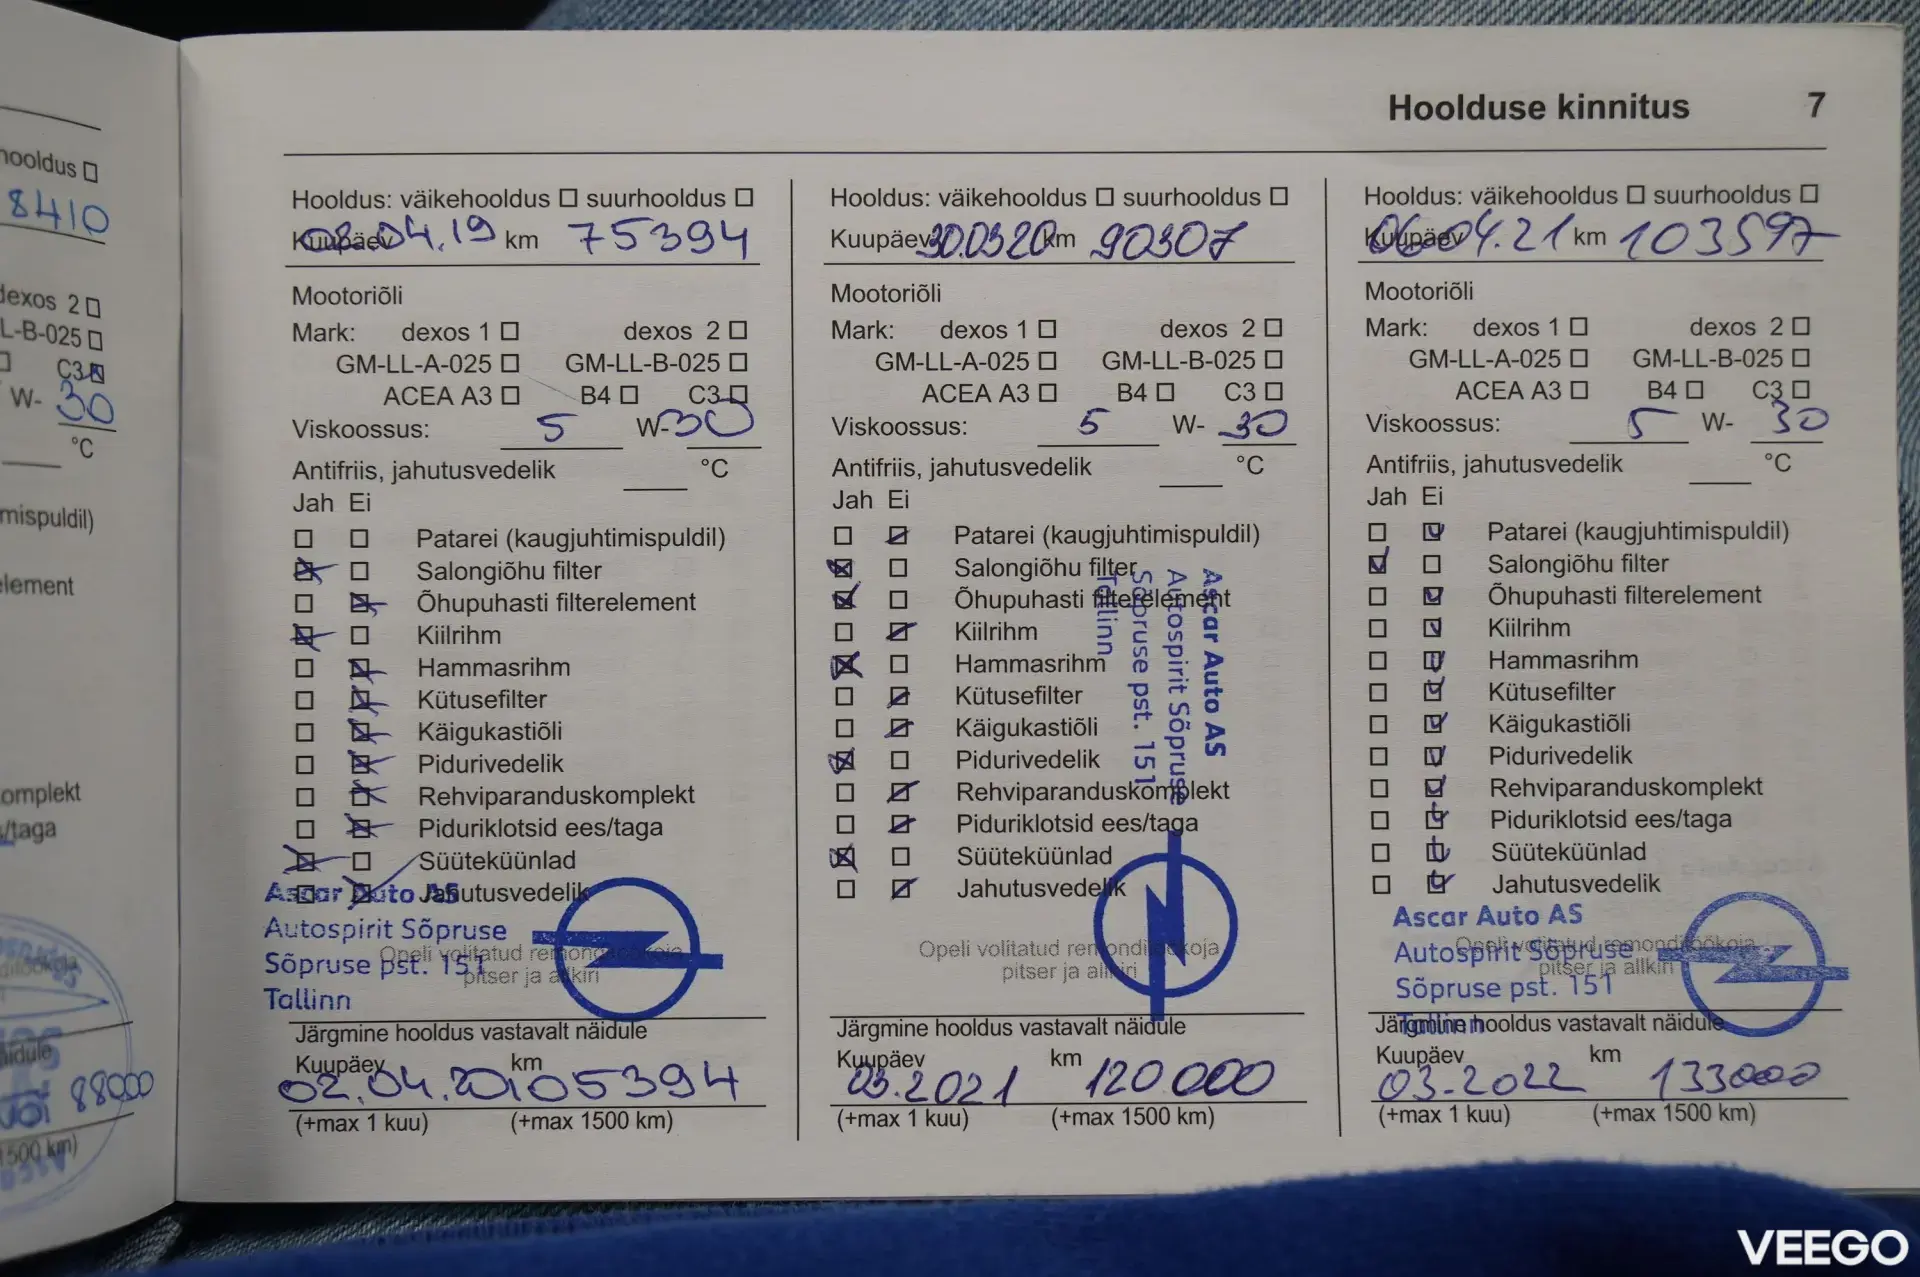 hooldus
8410
dexos 2
L-B-025
C3
W- 30
°C
mispuldil)
element
omplekt
/taga
88000
1500 km)
Hoolduse kinnitus 7
Hooldus: väikehooldus suurhooldus
Kuupäev 03.04.19 km 75394
Mootoriõli
Mark: dexos 1 dexos 2
GM-LL-A-025 GM-LL-B-025
ACEA A3 B4 C3
Viskoossus: 5 W-30
Antifriis, jahutusvedelik °C
Jah Ei
Patarei (kaugjuhtimispuldil)
Salongiõhu filter
Õhupuhasti filterelement
Kiilrihm
Hammasrihm
Kütusefilter
Käigukastiõli
Pidurivedelik
Rehviparanduskomplekt
Piduriklotsid ees/taga
Süüteküünlad
Jahutusvedelik
Ascar Auto AS
Autospirit Sõpruse
Sõpruse pst. 151
Tallinn
Opeli volitatud remonditöökoja
pitser ja allkiri
Järgmine hooldus vastavalt näidule
Kuupäev km
02.04.20 105394
(+max 1 kuu) (+max 1500 km)
Hooldus: väikehooldus suurhooldus
Kuupäev 30.03.20 km 90307
Mootoriõli
Mark: dexos 1 dexos 2
GM-LL-A-025 GM-LL-B-025
ACEA A3 B4 C3
Viskoossus: 5 W- 30
Antifriis, jahutusvedelik °C
Jah Ei
Patarei (kaugjuhtimispuldil)
Salongiõhu filter
Õhupuhasti filterelement
Kiilrihm
Hammasrihm
Kütusefilter
Käigukastiõli
Pidurivedelik
Rehviparanduskomplekt
Piduriklotsid ees/taga
Süüteküünlad
Jahutusvedelik
Ascar Auto AS
Autospirit Sõpruse
Sõpruse pst. 151
Tallinn
Opeli volitatud remonditöökoja
pitser ja allkiri
Järgmine hooldus vastavalt näidule
Kuupäev km
03.2021 120.000
(+max 1 kuu) (+max 1500 km)
Hooldus: väikehooldus suurhooldus
Kuupäev 06.04.21 km 103597
Mootoriõli
Mark: dexos 1 dexos 2
GM-LL-A-025 GM-LL-B-025
ACEA A3 B4 C3
Viskoossus: 5 W- 30
Antifriis, jahutusvedelik °C
Jah Ei
Patarei (kaugjuhtimispuldil)
Salongiõhu filter
Õhupuhasti filterelement
Kiilrihm
Hammasrihm
Kütusefilter
Käigukastiõli
Pidurivedelik
Rehviparanduskomplekt
Piduriklotsid ees/taga
Süüteküünlad
Jahutusvedelik
Ascar Auto AS
Autospirit Sõpruse
Sõpruse pst. 151
Tallinn
Opeli volitatud remonditöökoja
pitser ja allkiri
Järgmine hooldus vastavalt näidule
Kuupäev km
03.2022 133000
(+max 1 kuu) (+max 1500 km)
VEEGO